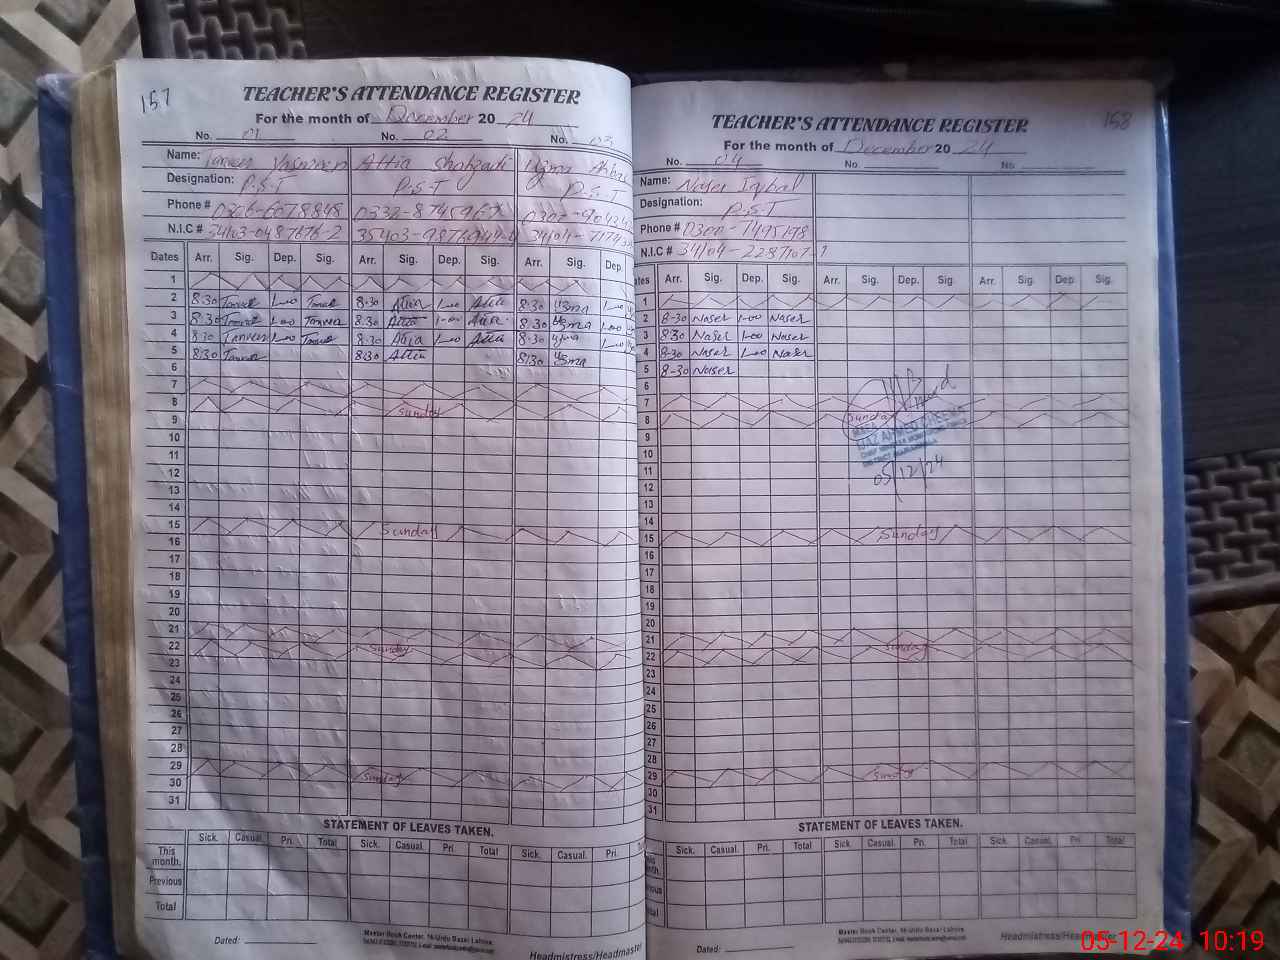 157
TEACHER'S ATTENDANCE REGISTER
For the month of December 20 24
No. 01 No. 02 No. 03
Name: Tanveer Yasmeen Attia Shahzadi Uzma Abbas
Designation: P.S.T P.S.T P.S.T
Phone #
N.I.C #
Dates Arr. Sig. Dep. Sig. Arr. Sig. Dep. Sig. Arr. Sig. Dep.
1
2 8:30 1-00 8:30 Attia 1-00 Attia 8:30 Uzma
3 8:30 1-00 Tanveer 8:30 Attia 1-00 8:30 Uzma
4 8:30 Tanveer 1-00 8:30 Attia 1-00 Attia 8:30
5 8:30 8:30 Attia 8:30 Uzma
6
7
8 Sunday
9
10
11
12
13
14
15 Sunday
16
17
18
19
20
21
22 Sunday
23
24
25
26
27
28
29
30 Sunday
31
STATEMENT OF LEAVES TAKEN.
Sick. Casual. Pri. Total Sick. Casual. Pri. Total Sick. Casual. Pri.
This month.
Previous
Total
Dated:
Master Book Center, 16-Urdu Bazar Lahore
Headmistress/Headmaster
158
TEACHER'S ATTENDANCE REGISTER
For the month of December 20 24
No. 04 No. No.
Name: Naser Iqbal
Designation: P.S.T
Phone # 0300-7475178
N.I.C #
Arr. Sig. Dep. Sig. Arr. Sig. Dep. Sig. Arr. Sig. Dep. Sig.
1
2 8-30 Naser 1-00 Naser
3 8-30 Naser 1-00 Naser
4 8-30 Naser 1-00 Naser
5 8-30 Naser
6
7
8 Sunday
9
10
11
05/12/24
12
13
14
15 Sunday
16
17
18
19
20
21
22 Sunday
23
24
25
26
27
28
29 Sunday
30
31
STATEMENT OF LEAVES TAKEN.
Sick. Casual. Pri. Total Sick. Casual. Pri. Total Sick. Casual. Pri. Total
Dated:
Master Book Center, 16-Urdu Bazar Lahore
05-12-24 10:19